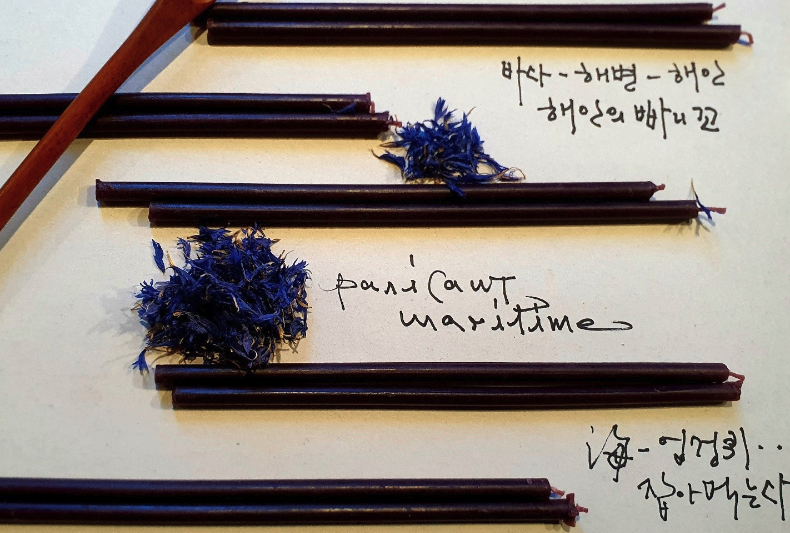 바사 - 해변 - 해안
해안의 빠니꼬
panicaut
maritime
海 - 엉겅퀴..
잡아먹는사